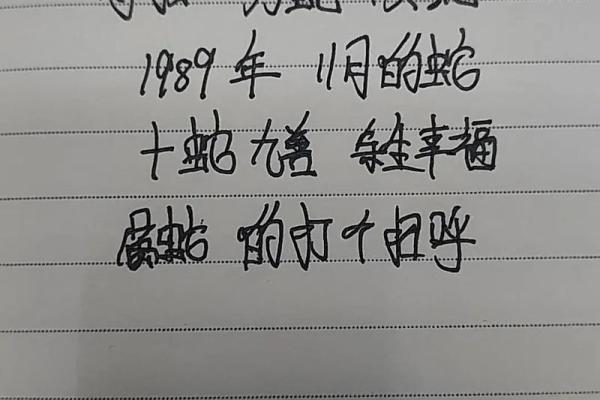 1989年 11月的蛇
十蛇九善 余生幸福
属蛇 的打个招呼